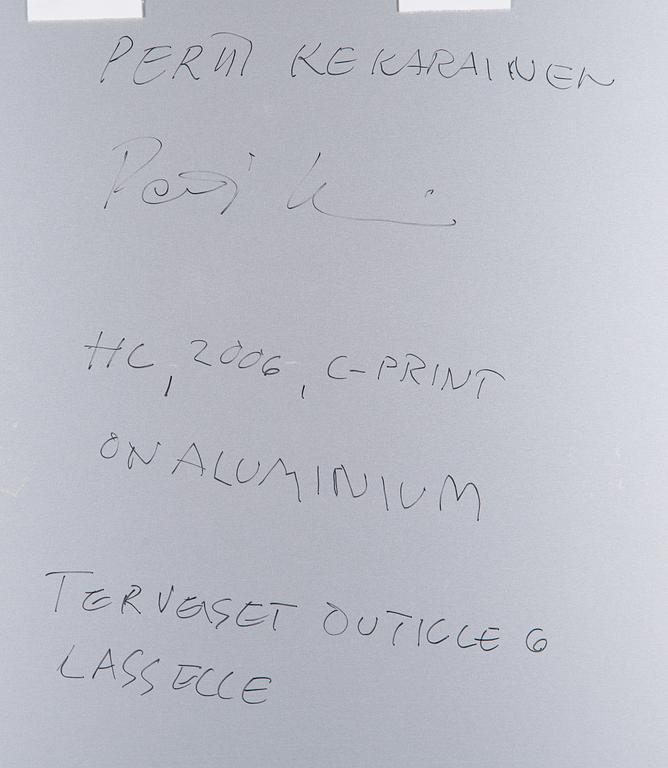 PERTTI KEKARAINEN
HC, 2006, C-PRINT
ON ALUMINIUM
TERVEISET OUTILLE &
LASSELLE